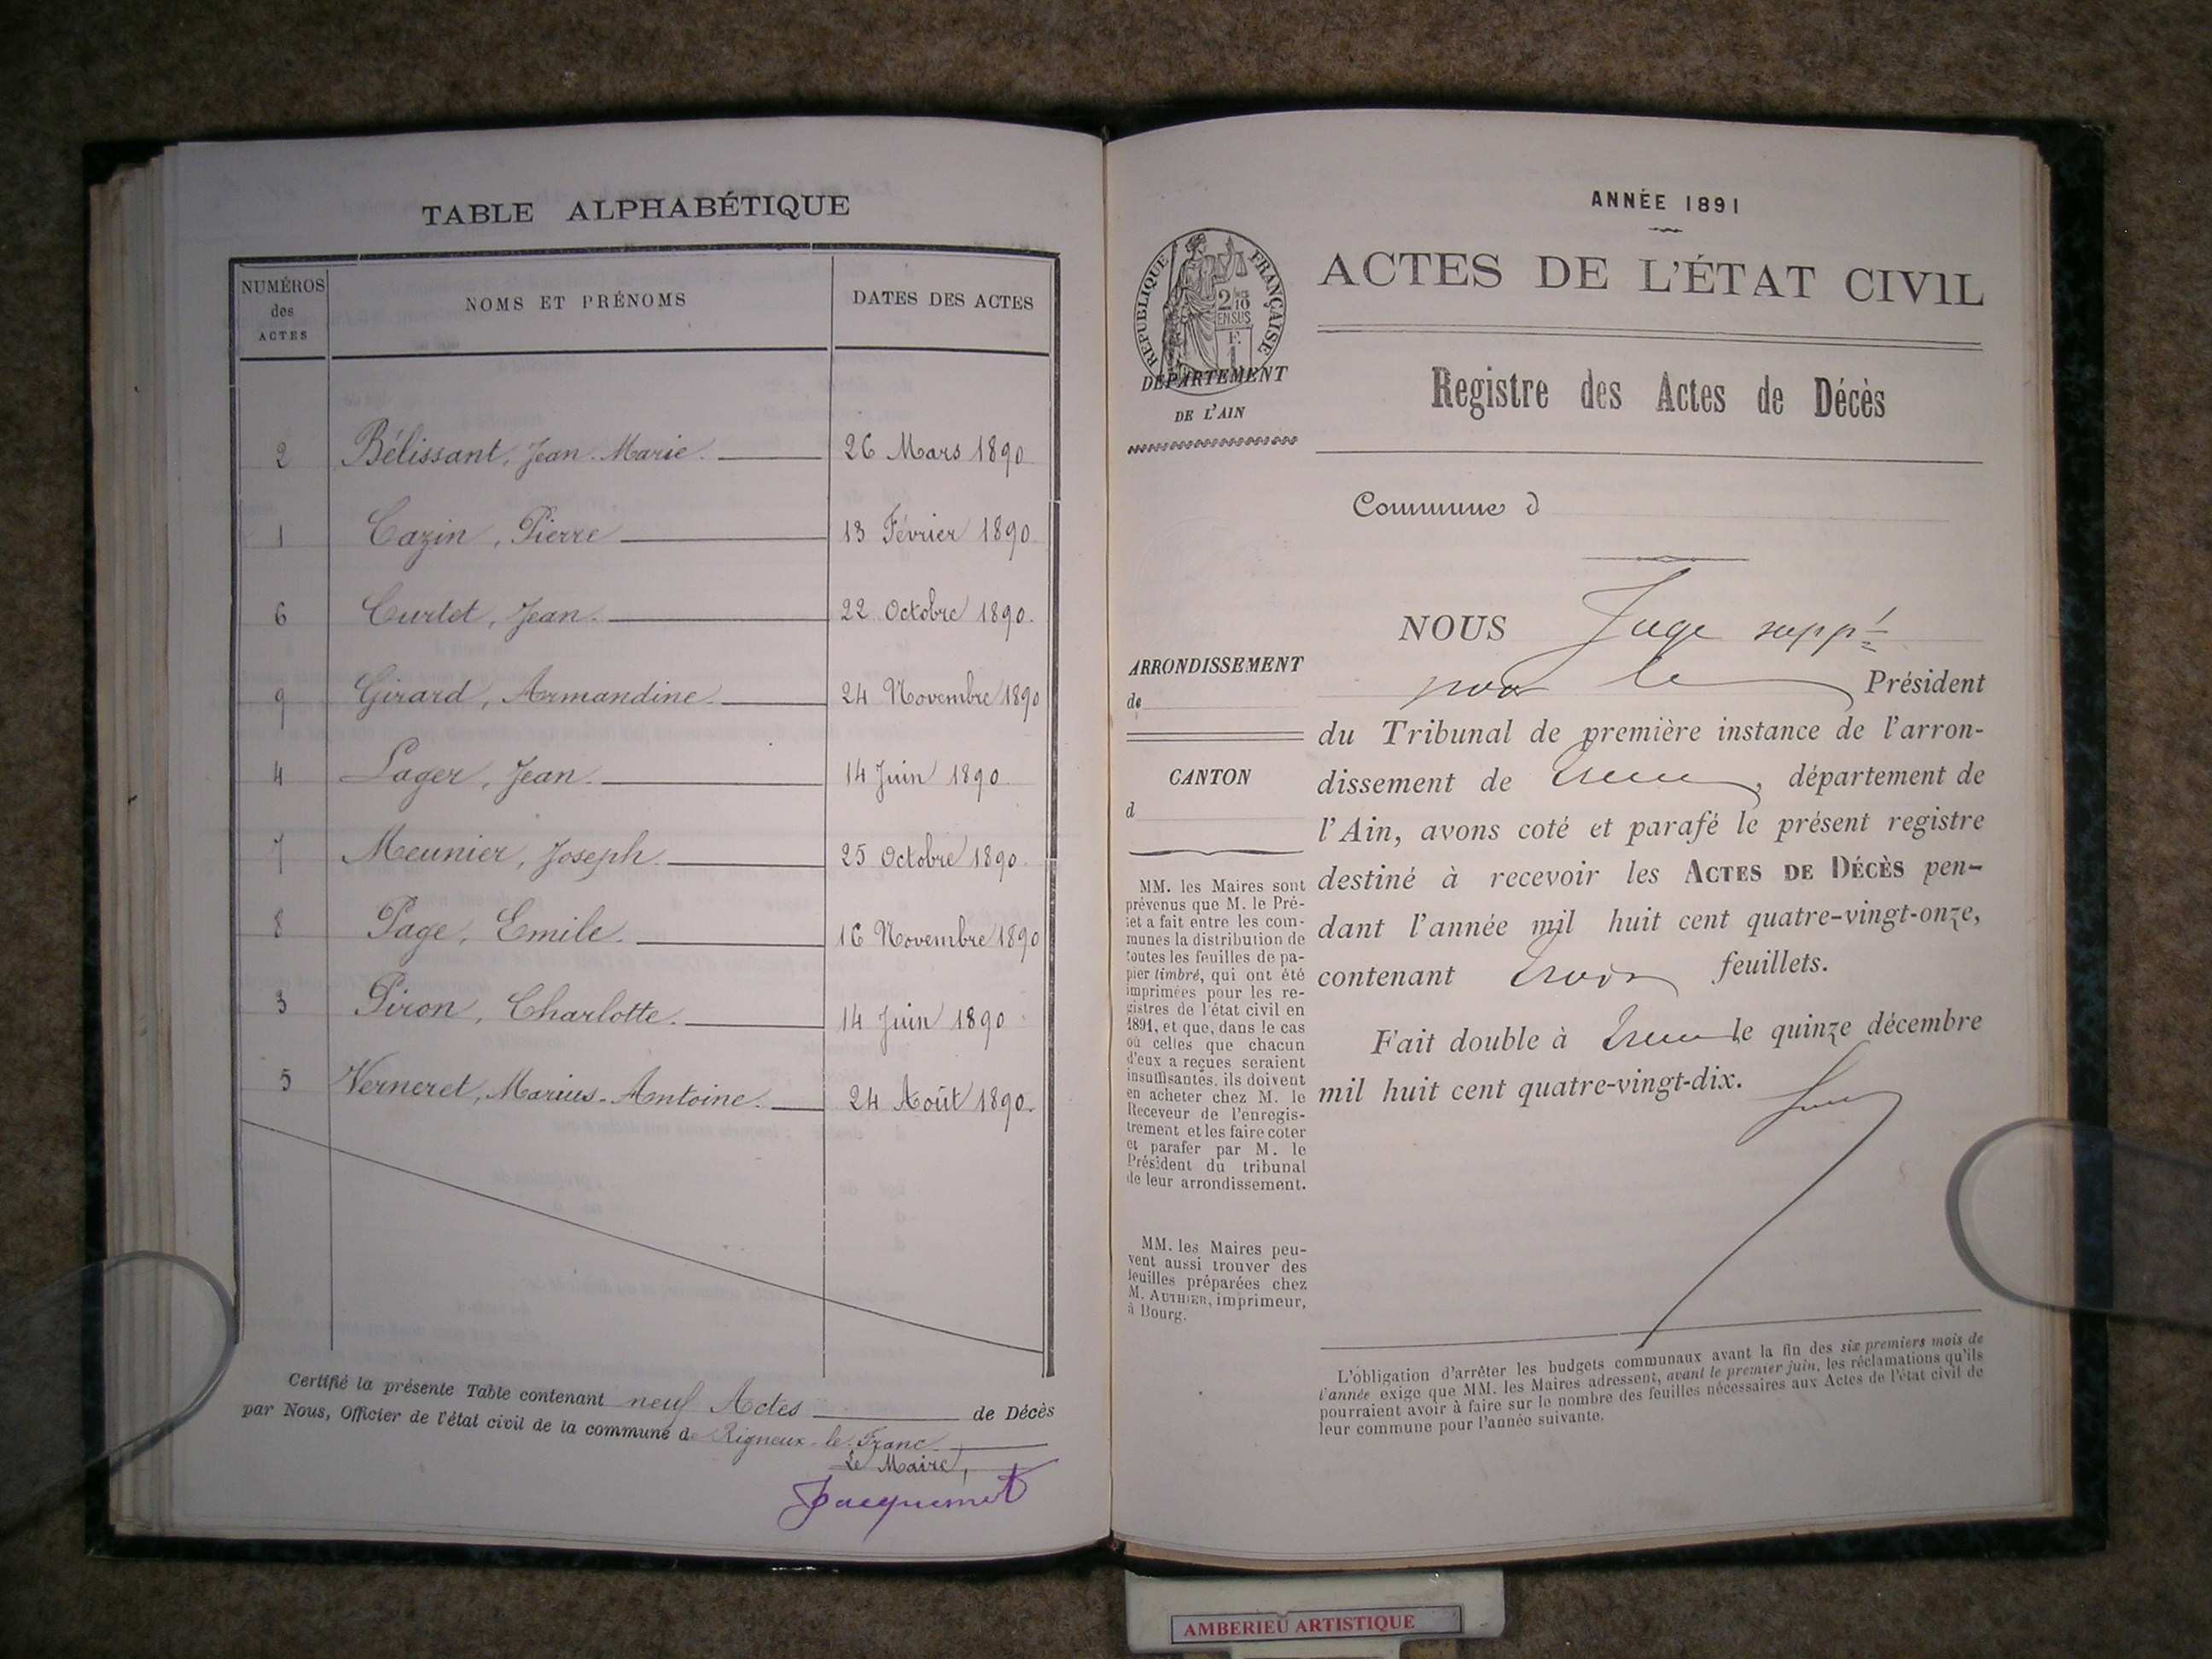 TABLE ALPHABÉTIQUE
NUMÉROS des ACTES NOMS ET PRÉNOMS DATES DES ACTES
2 Bélissant, Jean-Marie. 26 Mars 1890
1 Cazin, Pierre 13 Février 1890
6 Curtet, Jean. 22 Octobre 1890.
9 Girard, Armandine. 24 Novembre 1890
4 Lager, Jean. 14 Juin 1890.
7 Meunier, Joseph. 25 Octobre 1890.
8 Page, Emile. 16 Novembre 1890
3 Piron, Charlotte. 14 Juin 1890
5 Verneret, Marius-Antoine. 24 Août 1890.
Certifié la présente Table contenant neuf Actes de Décès
par Nous, Officier de l'état civil de la commune de Rigneux-le-Franc.
Le Maire,
Jacquemet
ANNÉE 1891
ACTES DE L'ÉTAT CIVIL
RÉPUBLIQUE FRANÇAISE
2/10 EN SUS
F. 1
DÉPARTEMENT
DE L'AIN
Registre des Actes de Décès
Commune d
ARRONDISSEMENT
de
CANTON
d
MM. les Maires sont
prévenus que M. le Pré-
fet a fait entre les com-
munes la distribution de
toutes les feuilles de pa-
pier timbré, qui ont été
imprimées pour les re-
gistres de l'état civil en
1891, et que, dans le cas
où celles que chacun
d'eux a reçues seraient
insuffisantes, ils doivent
en acheter chez M. le
Receveur de l'enregis-
trement et les faire coter
et parafer par M. le
Président du tribunal
de leur arrondissement.
MM. les Maires peu-
vent aussi trouver des
feuilles préparées chez
M. AUTHIER, imprimeur,
à Bourg.
NOUS Juge suppt
pour le Président
du Tribunal de première instance de l'arron-
dissement de Trévoux, département de
l'Ain, avons coté et parafé le présent registre
destiné à recevoir les ACTES DE DÉCÈS pen-
dant l'année mil huit cent quatre-vingt-onze,
contenant trois feuillets.
Fait double à Trévoux le quinze décembre
mil huit cent quatre-vingt-dix.
L'obligation d'arrêter les budgets communaux avant la fin des six premiers mois de
l'année exige que MM. les Maires adressent, avant le premier juin, les réclamations qu'ils
pourraient avoir à faire sur le nombre des feuilles nécessaires aux Actes de l'état civil de
leur commune pour l'année suivante.
AMBERIEU ARTISTIQUE